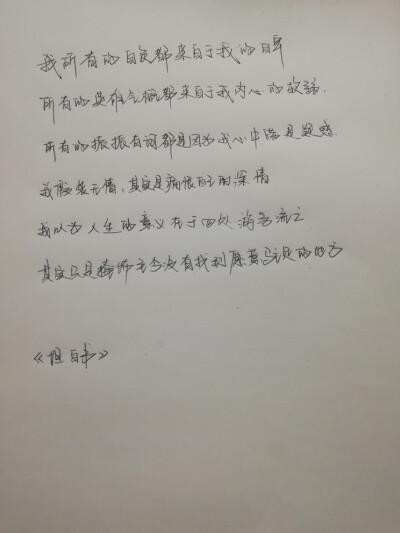 我所有的自负都来自于我的自卑
所有的英雄气概都来自于我内心的软弱.
所有的振振有词都是因为我心中满是疑惑.
我假装无情,其实是痛恨自己的深情
我以为人生的意义在于四处游荡流亡
其实只是掩饰至今没有找到愿意驻足的地方
《坦白书》